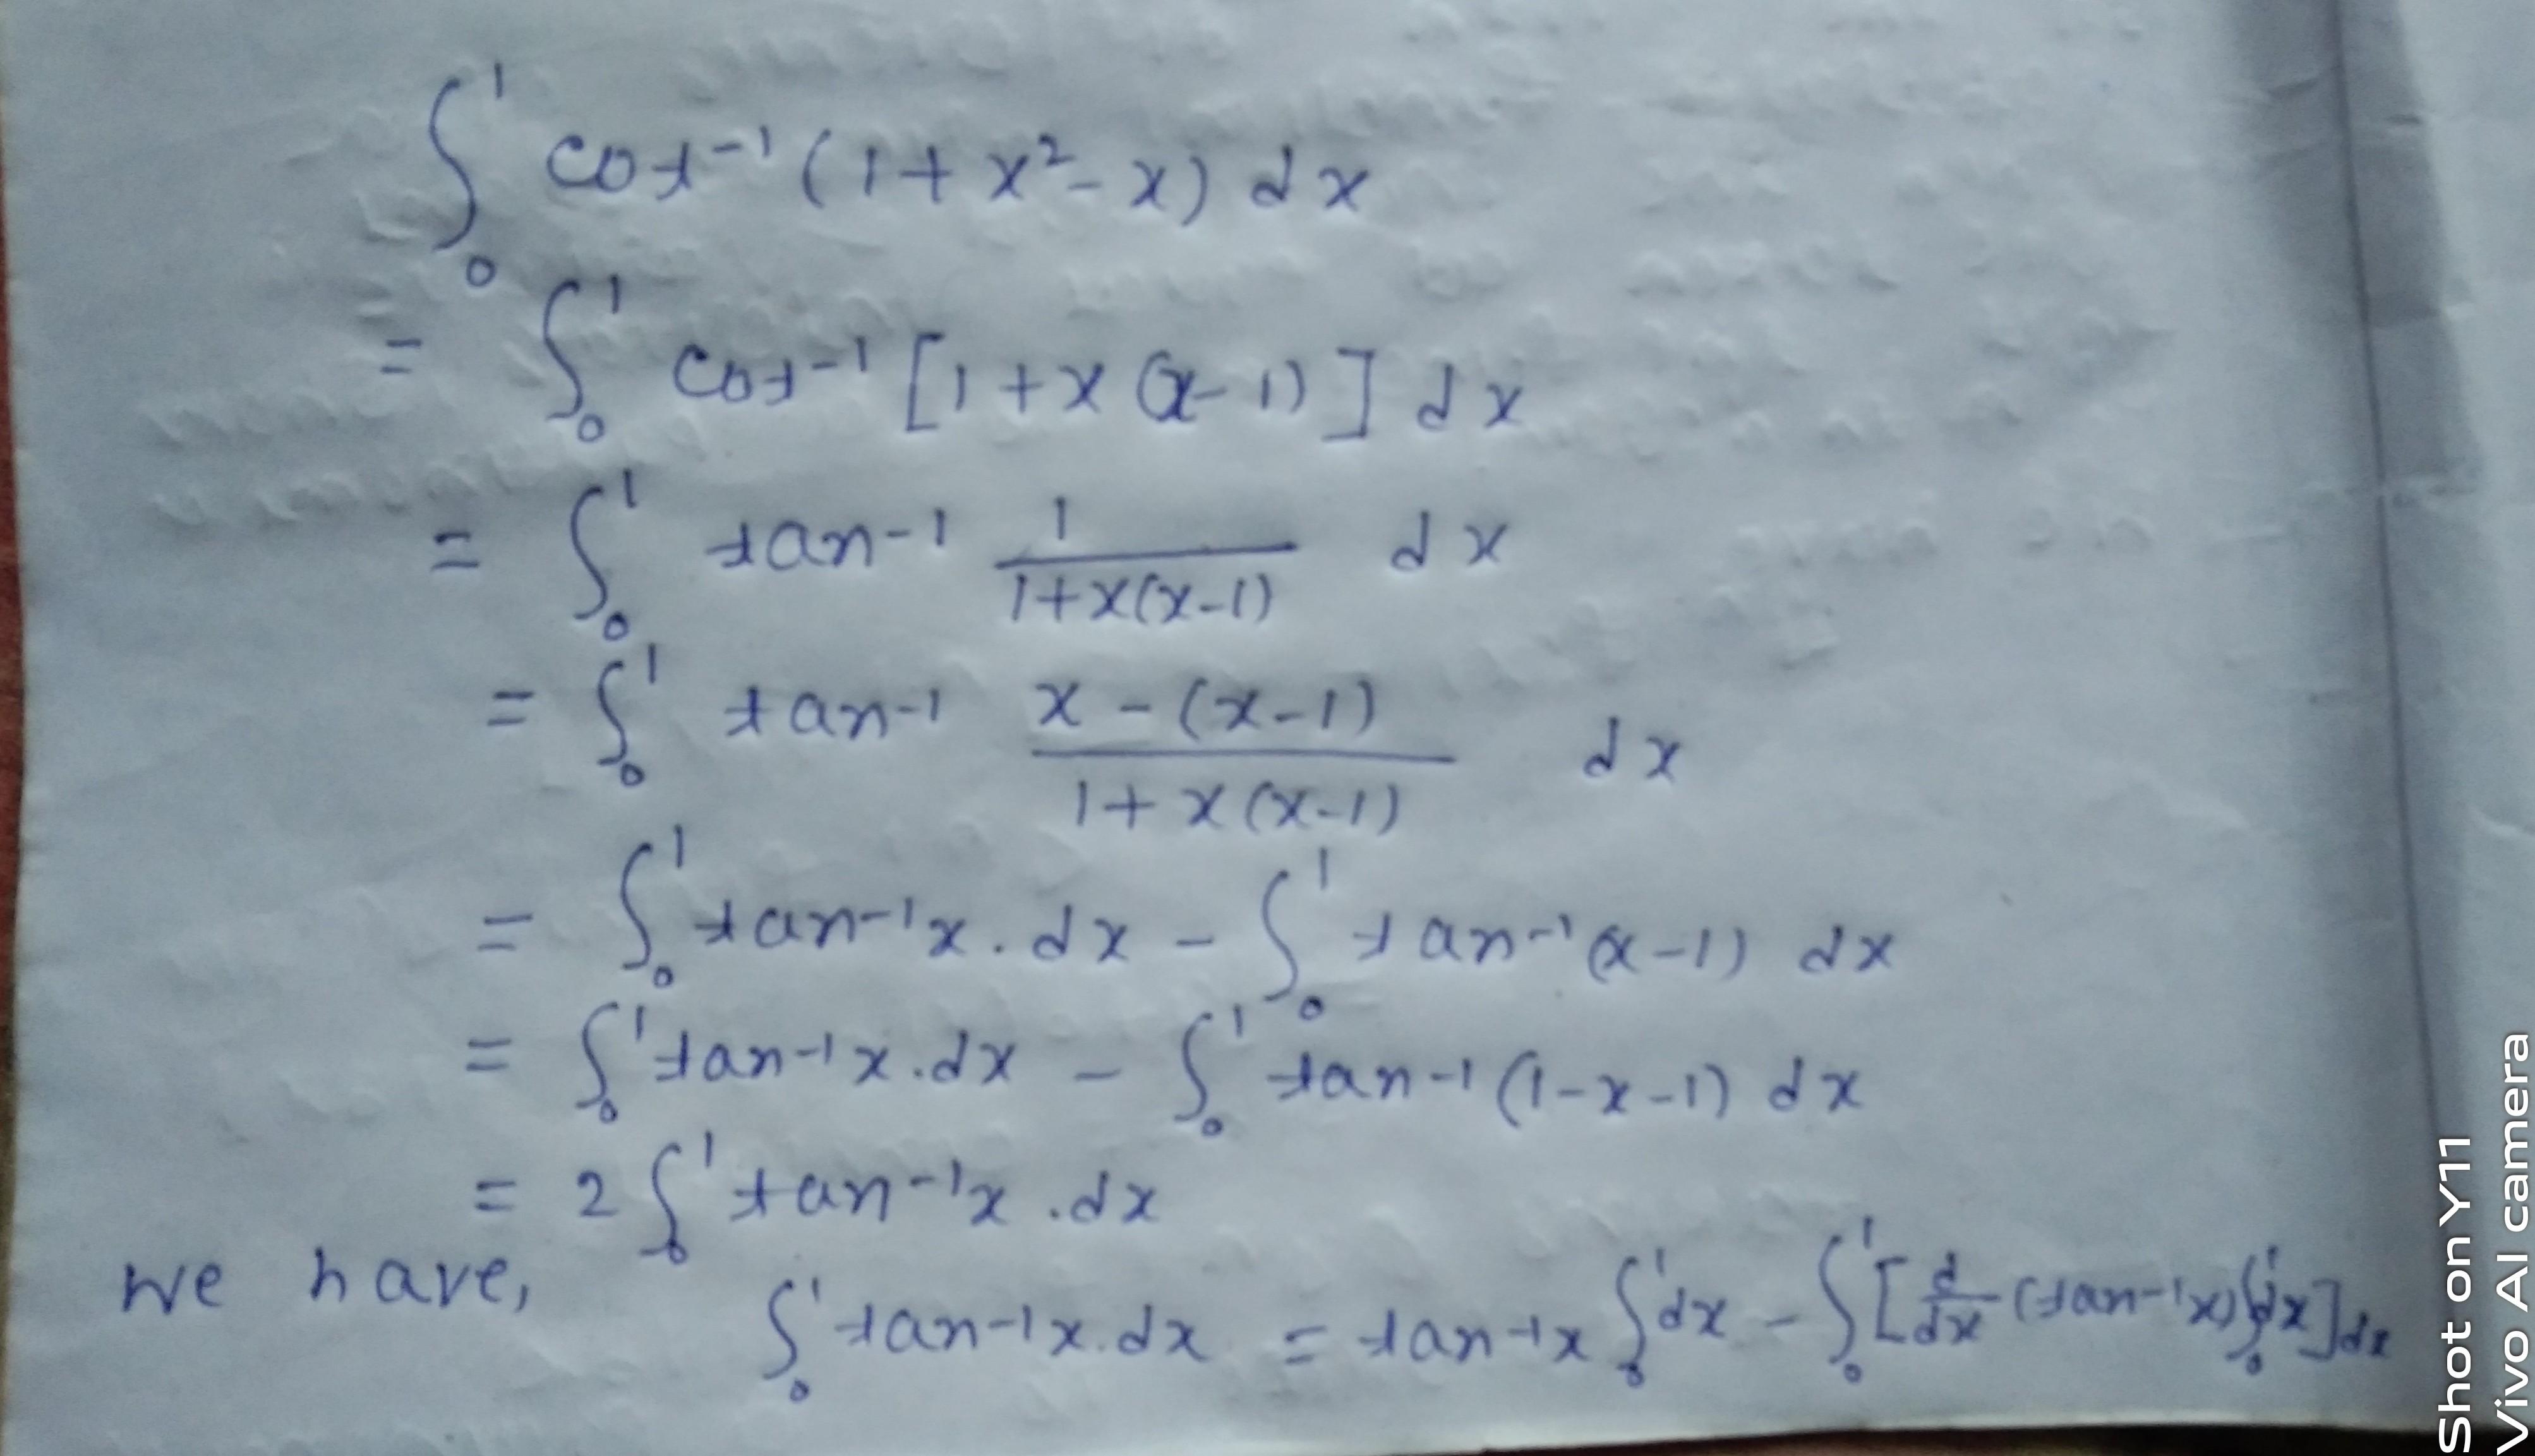 ∫₀¹ cot⁻¹ (1 + x² - x) dx
= ∫₀¹ cot⁻¹ [1 + x (x - 1)] dx
= ∫₀¹ tan⁻¹ 1/(1+x(x-1)) dx
= ∫₀¹ tan⁻¹ (x - (x-1))/(1 + x (x-1)) dx
= ∫₀¹ tan⁻¹x . dx - ∫₀¹ tan⁻¹ (x-1) dx
= ∫₀¹ tan⁻¹x . dx - ∫₀¹ tan⁻¹ (1-x-1) dx
= 2 ∫₀¹ tan⁻¹x . dx
we have,
∫₀¹ tan⁻¹x . dx = tan⁻¹x ∫₀¹ dx - ∫₀¹ [d/dx (tan⁻¹x) ∫₀¹ dx] dx
Shot on Y11
Vivo AI camera